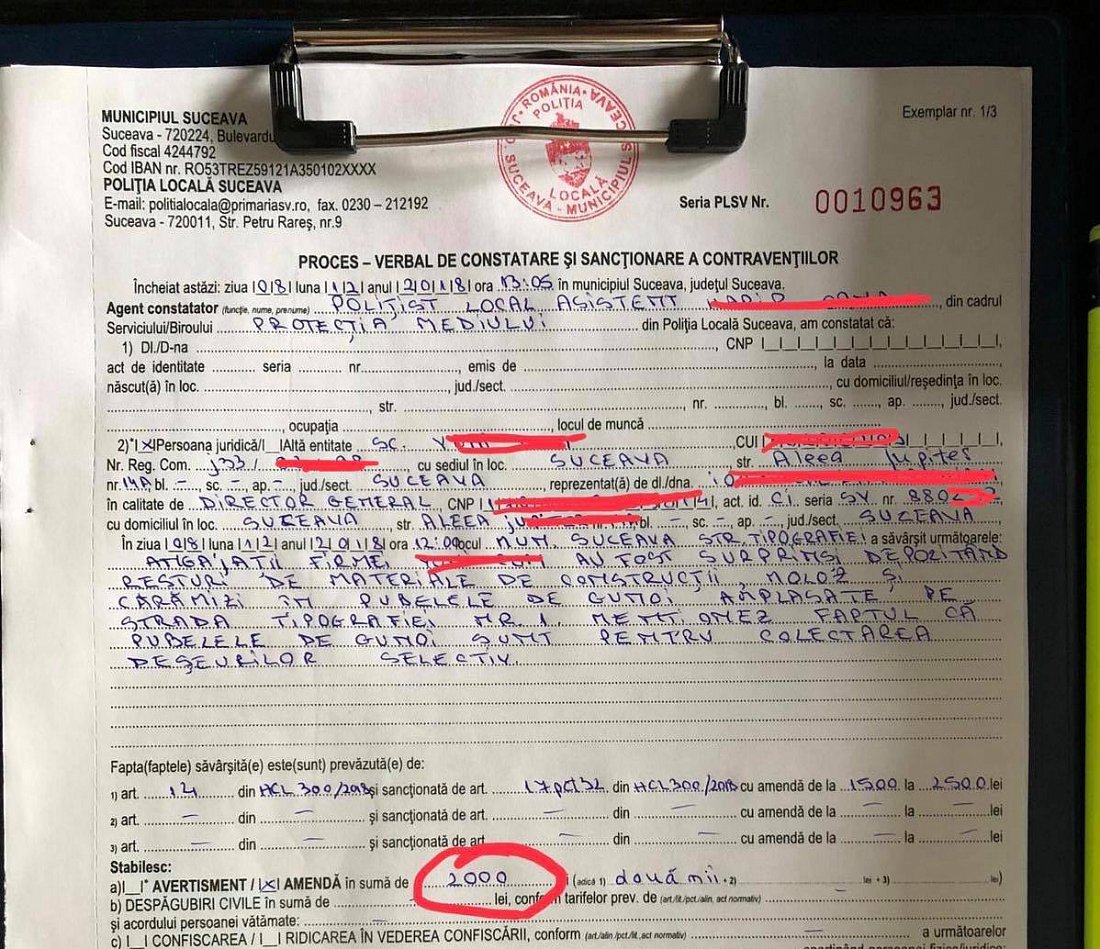 MUNICIPIUL SUCEAVA
Suceava - 720224, Bulevardu
Cod fiscal 4244792
Cod IBAN nr. RO53TREZ59121A350102XXXX
POLIŢIA LOCALĂ SUCEAVA
E-mail: politialocala@primariasv.ro, fax. 0230 – 212192
Suceava - 720011, Str. Petru Rareş, nr.9
ROMÂNIA
POLIŢIA
LOCALĂ
JUD. SUCEAVA - MUNICIPIUL SUCEAVA
Exemplar nr. 1/3
Seria PLSV Nr. 0010963
PROCES – VERBAL DE CONSTATARE ŞI SANCŢIONARE A CONTRAVENŢIILOR
Încheiat astăzi: ziua |0|8| luna |1|2| anul |2|0|1|8| ora 13:05 în municipiul Suceava, judeţul Suceava.
Agent constatator (funcţie, nume, prenume) POLIŢIST LOCAL ASISTENT , din cadrul
Serviciului/Biroului PROTECŢIA MEDIULUI din Poliţia Locală Suceava, am constatat că:
1) Dl./D-na , CNP
act de identitate seria nr. emis de , la data
născut(ă) în loc. , jud./sect. , cu domiciliul/reşedinţa în loc.
, str. , nr. , bl. , sc. , ap. , jud./sect.
, ocupaţia , locul de muncă
2)*|X|Persoana juridică/|_|Altă entitate SC. CUI
Nr. Reg. Com. J33/ cu sediul în loc. SUCEAVA str. Aleea Jupiter
nr. 14A, bl. -, sc. -, ap. -, jud./sect. SUCEAVA , reprezentat(ă) de dl./dna.
în calitate de DIRECTOR GENERAL, CNP , act. id. C.I. seria SV nr.
cu domiciliul în loc. SUCEAVA , str. ALEEA bl. -, sc. -, ap. -, jud./sect. SUCEAVA
În ziua |0|8| luna |1|2| anul |2|0|1|8| ora 12:00 locul MUN. SUCEAVA STR. TIPOGRAFIEI a săvârşit următoarele:
ANGAJAŢII FIRMEI AU FOST SURPRINŞI DEPOZITÂND
RESTURI DE MATERIALE DE CONSTRUCŢII, MOLOZ ŞI
CĂRĂMIZI ÎN PUBELELE DE GUNOI AMPLASATE PE
STRADA TIPOGRAFIEI NR. 1. MENŢIONEZ FAPTUL CĂ
PUBELELE DE GUNOI SUNT PENTRU COLECTAREA
DEŞEURILOR SELECTIV.
Fapta(faptele) săvârşită(e) este(sunt) prevăzută(e) de:
1) art. 14 din HCL 300/2018 şi sancţionată de art. 17 pct 32 din HCL 300/2018 cu amendă de la 1500 la 2500 lei
2) art. – din – şi sancţionată de art. – din – cu amendă de la – la – lei
3) art. – din – şi sancţionată de art – din – cu amendă de la – la – lei
Stabilesc:
a)|_|* AVERTISMENT / |X| AMENDĂ în sumă de 2000 (adică 1) două mii + 2) lei + 3) lei)
b) DESPĂGUBIRI CIVILE în sumă de lei, conform tarifelor prev. de (art./lit./pct./alin, act normativ)
şi acordului persoanei vătămate: –
c) |_| CONFISCAREA / |_| RIDICAREA ÎN VEDEREA CONFISCĂRII, conform (art./alin./pct./lit.,act normativ) – a următoarelor